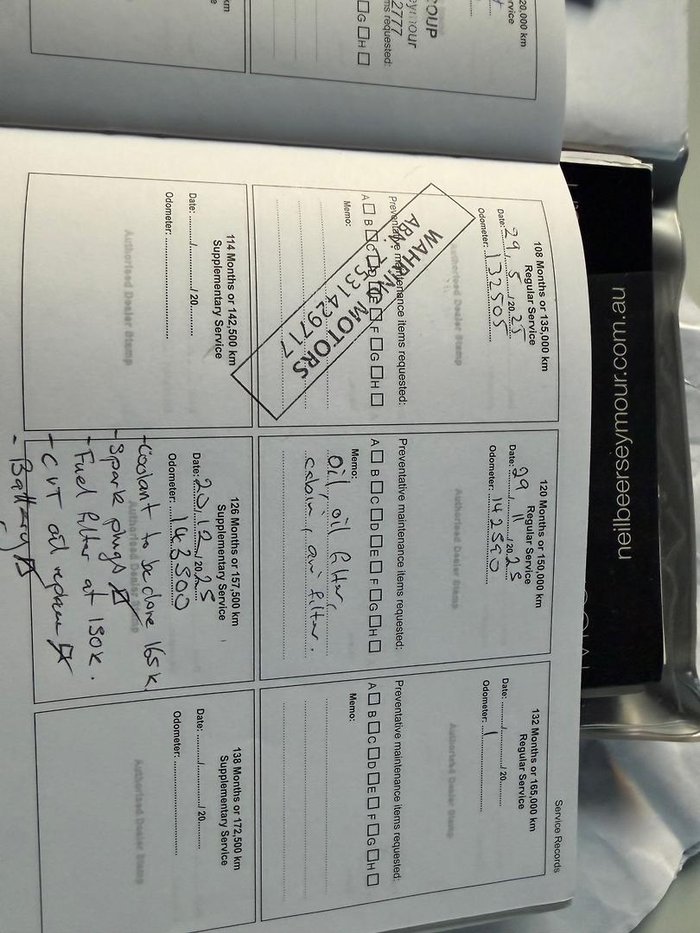 20,000 km
rvice
OUP
eymour
2777
ms requested:
G H
km
neilbeerseymour.com.au
Service Records
108 Months or 135,000 km
Regular Service
Date: 29 / 5 / 20 25
Odometer: 132505
Authorised Dealer Stamp
Preventative maintenance items requested:
A B C D E F G H
Memo:
WAHRING MOTORS
5331429717
114 Months or 142,500 km
Supplementary Service
Date: ......../......../ 20........
Odometer: ........................
Authorised Dealer Stamp
120 Months or 150,000 km
Regular Service
Date: 29 / 11 / 20 25
Odometer: 142590
Authorised Dealer Stamp
Preventative maintenance items requested:
A B C D E F G H
Memo:
oil, oil filter,
cabin, air filter.
126 Months or 157,500 km
Supplementary Service
Date: 20 / 12 / 20 25
Odometer: 143500
Authorised Dealer Stamp
- Coolant to be done 165k
- Spark plugs
- Fuel filter at 190k.
- CVT oil replace
- Battery
132 Months or 165,000 km
Regular Service
Date: ......../......../ 20........
Odometer: 1
Authorised Dealer Stamp
Preventative maintenance items requested:
A B C D E F G H
Memo:
138 Months or 172,500 km
Supplementary Service
Date: ......../......../ 20........
Odometer: ........................
Authorised Dealer Stamp